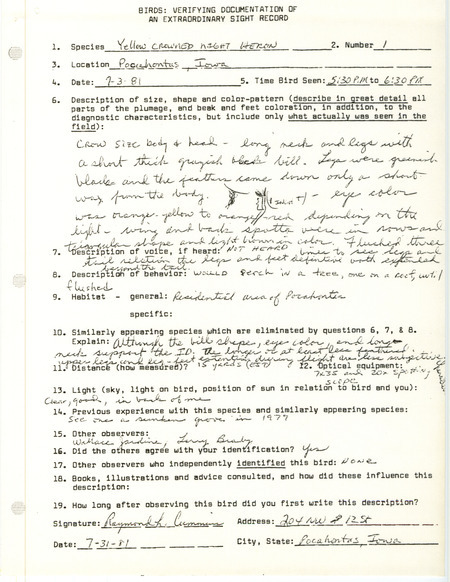 BIRDS: VERIFYING DOCUMENTATION OF
AN EXTRAORDINARY SIGHT RECORD
1. Species Yellow crowned night heron 2. Number 1
3. Location Pocahontas, Iowa
4. Date: 7-3-81 5. Time Bird Seen: 5:30 PM to 6:30 PM
6. Description of size, shape and color-pattern (describe in great detail all
parts of the plumage, and beak and feet coloration, in addition, to the
diagnostic characteristics, but include only what actually was seen in the
field):
Crow size body & head - long neck and legs with
a short thick grayish black bill. Legs were greenish
black and the feathers came down only a short
way from the body. - eye color
was orange-yellow to orange/red depending on the
light - wing and back spots were in rows and
triangular shape and light brown in color. Flushed three
7. Description of voice, if heard: NOT HEARD times to see legs and
tail relation the legs and feet definitely both extended
beyond the tail.
8. Description of behavior: would perch in a tree, once on a roof, until
flushed
9. Habitat - general: Residential area of Pocahontas
specific:
10. Similarly appearing species which are eliminated by questions 6, 7, & 8.
Explain: Although the bill shape, eye color, and long
neck support the ID. the longer or at least less feathered
upper legs and leg-feet extention during flight are less subjective
11. Distance (how measured)? 15 yards (EST) 12. Optical equipment:
7x35 and 20x spotting
scope
13. Light (sky, light on bird, position of sun in relation to bird and you):
Clear, good, in back of me
14. Previous experience with this species and similarly appearing species:
See once a grove in 1977
15. Other observers:
Wallace Jardine, Terry Brady
16. Did the others agree with your identification? Yes
17. Other observers who independently identified this bird: NONE
18. Books, illustrations and advice consulted, and how did these influence this
description:
19. How long after observing this bird did you first write this description?
Signature: Raymond L. Cummins Address: 204 NW # 12 St
Date: 7-31-81 City, State: Pocahontas, Iowa